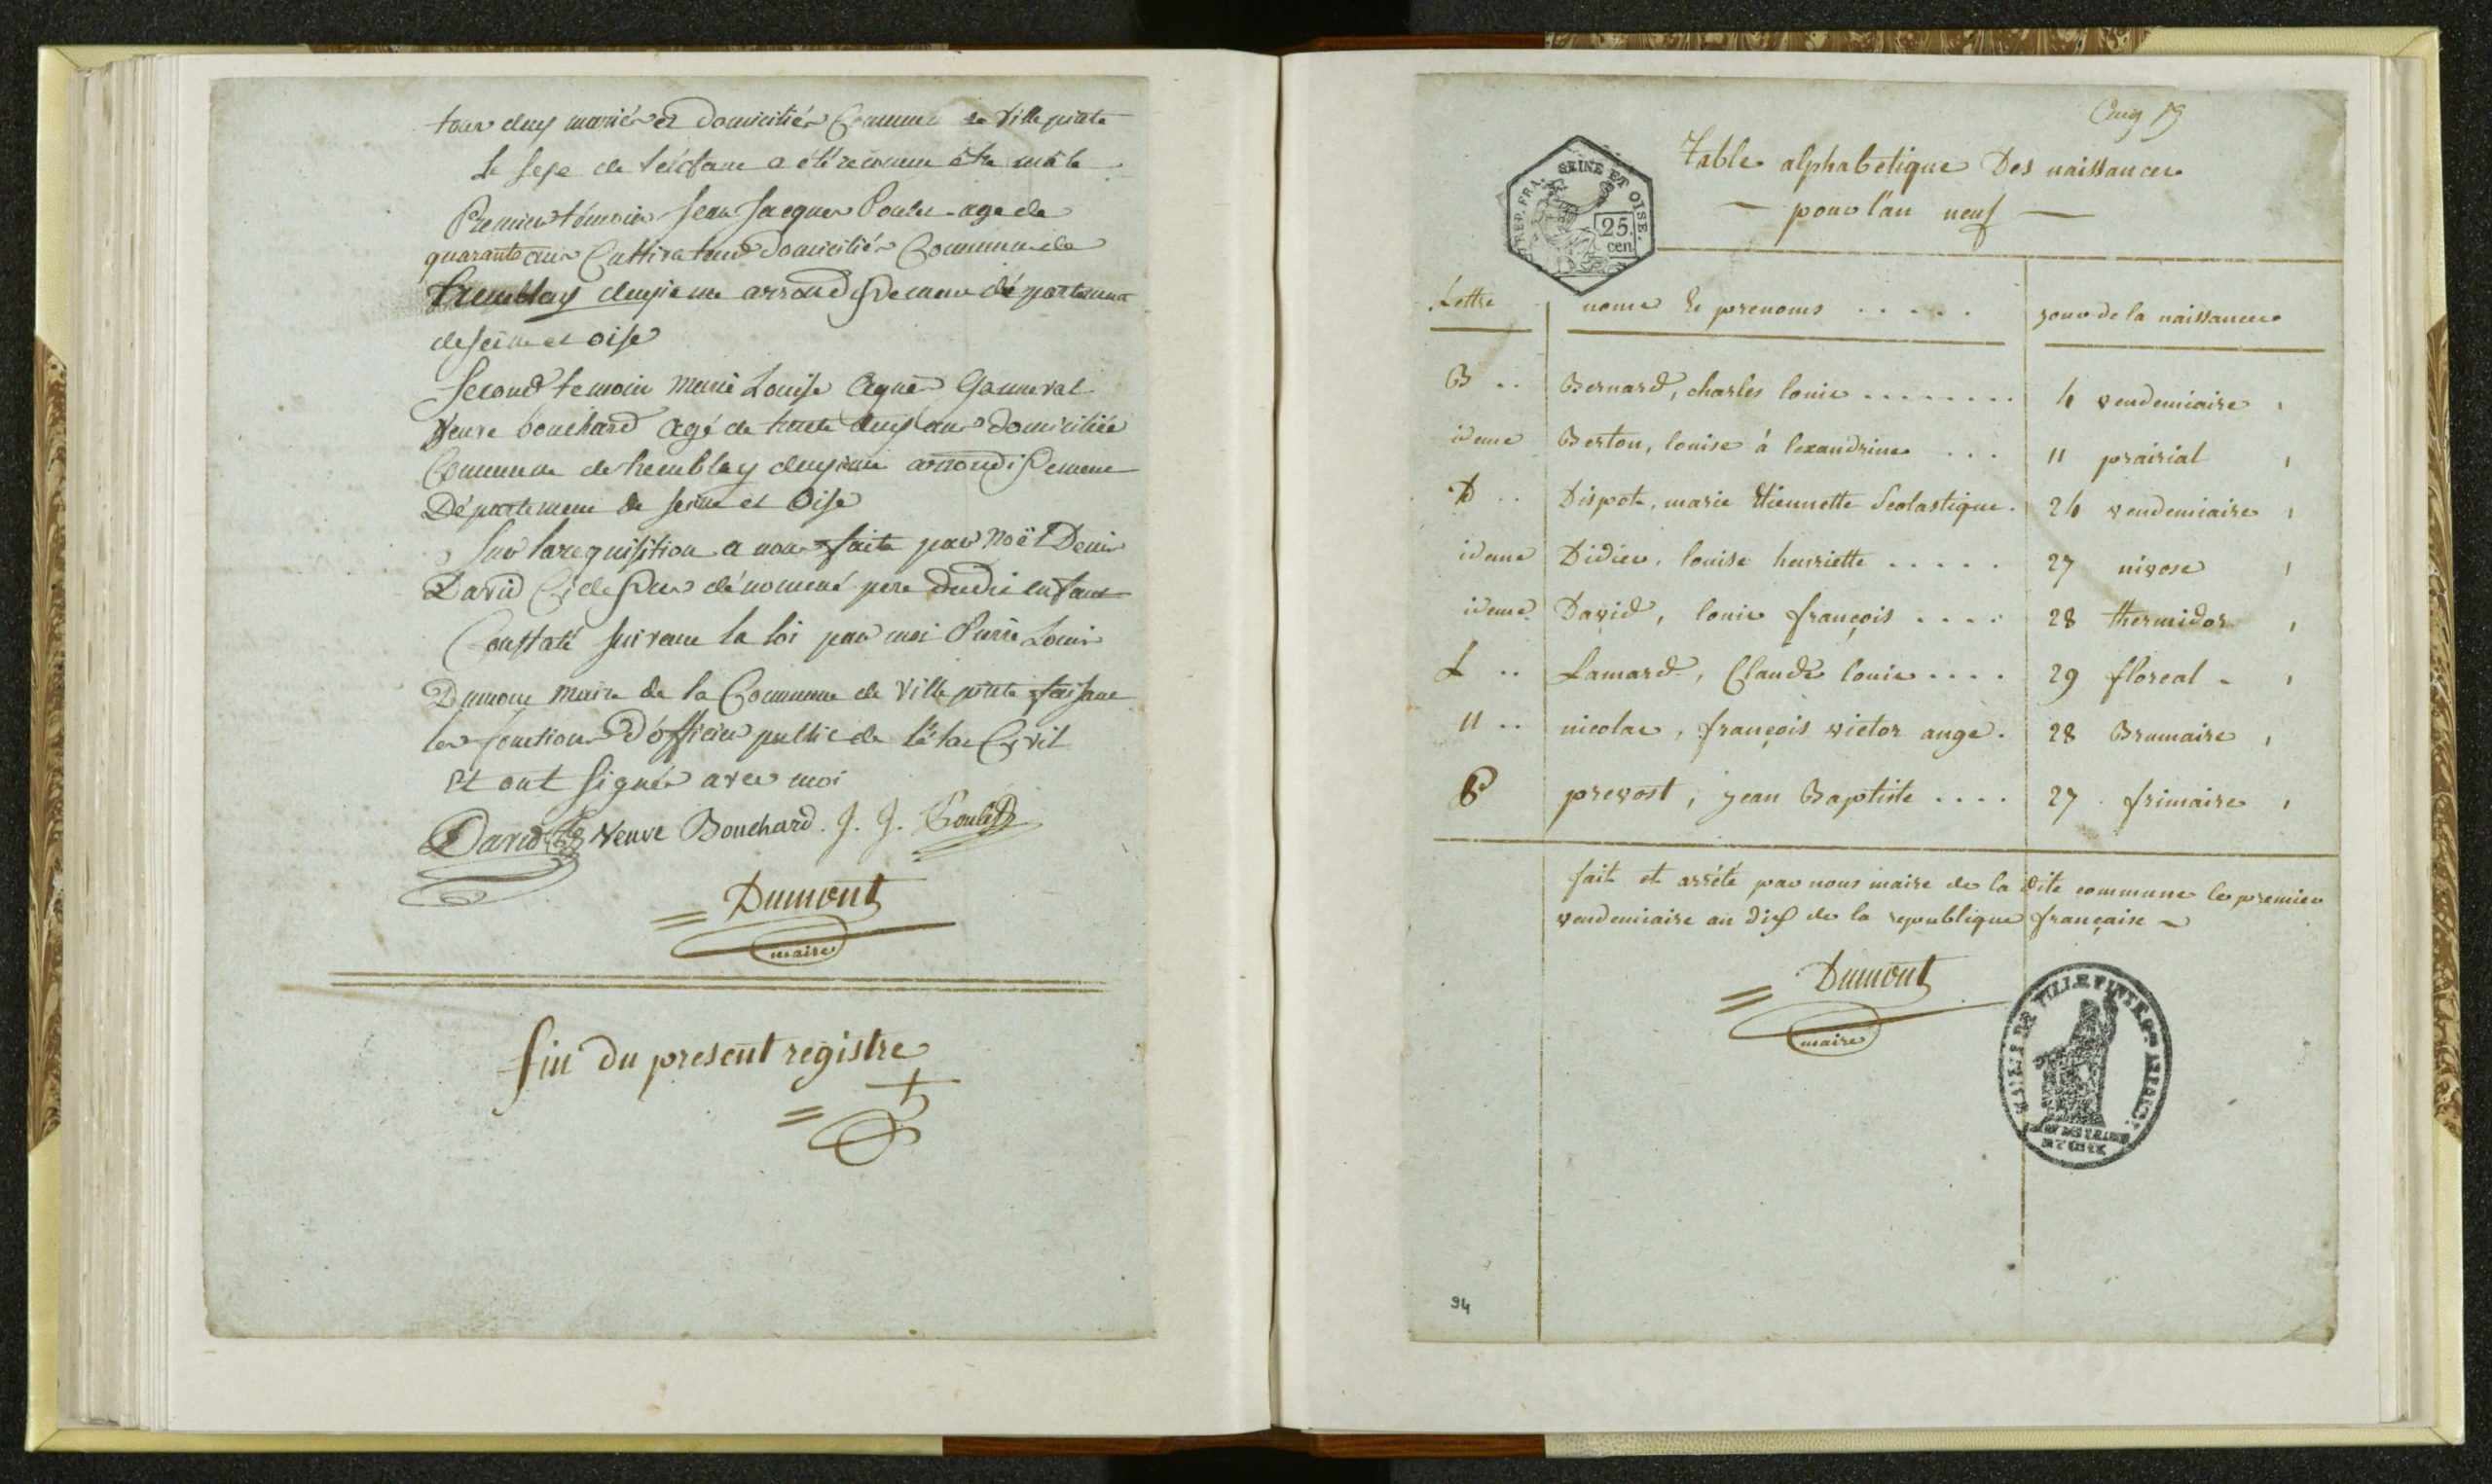 tous deux mariés et domiciliés Commune de Villepinte
Le sexe de l'enfant a été reconnu être mâle
Premier témoin Jean Jacques Poulet age de
quarante ans Cultivateur domiciliés Commune de
tremblay deuxieme arrondissement département
de seine et oise
Second temoin marie Louise Agnes Ganneval
Veuve bouchard agé de trente deux ans domiciliée
Commune de tremblay deuxieme arrondissement
Département de seine et Oise
Sur la requisition a nous faite par noël Denis
David Cidessus dénommé pere dudit enfant
Constaté suivant la loi par moi Pierre Louis
Dumont maire de la Commune de Villepinte faisant
les fonctions d'officier public de l'état Civil
Et ont signés avec moi
David Veuve Bouchard. J. J. Poulet
Dumont
maire
fin du present registre
Table alphabetique Des naissances
pour l'an neuf
REP. FRA. SEINE ET OISE.
25. cen
Lettre noms & prenoms ..... jour de la naissance
B .. Bernard, charles louis ........ 4 vendemiaire
idem Berton, louise à lexandrine ... 11 prairial
D .. Dispot, marie Etiennette Scolastique. 24 vendemiaire
idem Didier, louise henriette ..... 27 nivose
idem David, louis françois .... 28 thermidor
L .. Lamard, Claude louis .... 29 floreal
n .. nicolas, françois victor ange. 28 Brumaire
P prevost, jean Baptiste .... 27 frimaire
fait et arrété par nous maire de la dite commune le premier
vendemiaire an dix de la republique française
Dumont
maire
MAIRIE DE VILLEPINTE
94